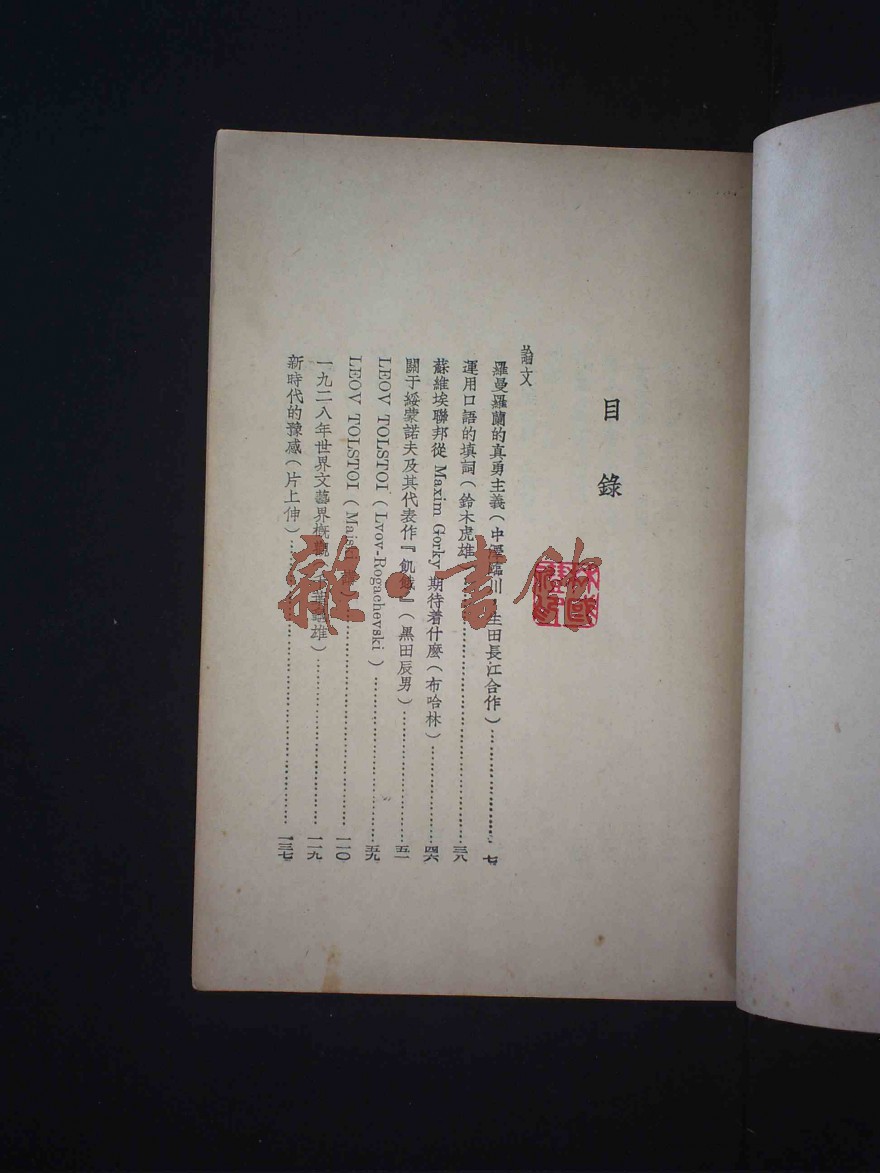 目錄
論文
羅曼羅蘭的真勇主義(中澤臨川 生田長江合作)……七
運用口語的填詞(鈴木虎雄)……三八
蘇維埃聯邦從 Maxim Gorky 期待着什麼(布哈林)……四六
關于綏蒙諾夫及其代表作『飢餓』(黑田辰男)……五一
LEOV TOLSTOI(Lvov-Rogachevski)……五九
LEOV TOLSTOI(Maiski)……一一〇
一九二八年世界文藝界概觀(千葉龜雄)……一一九
新時代的豫感(片上伸)……一三七
雜·書館